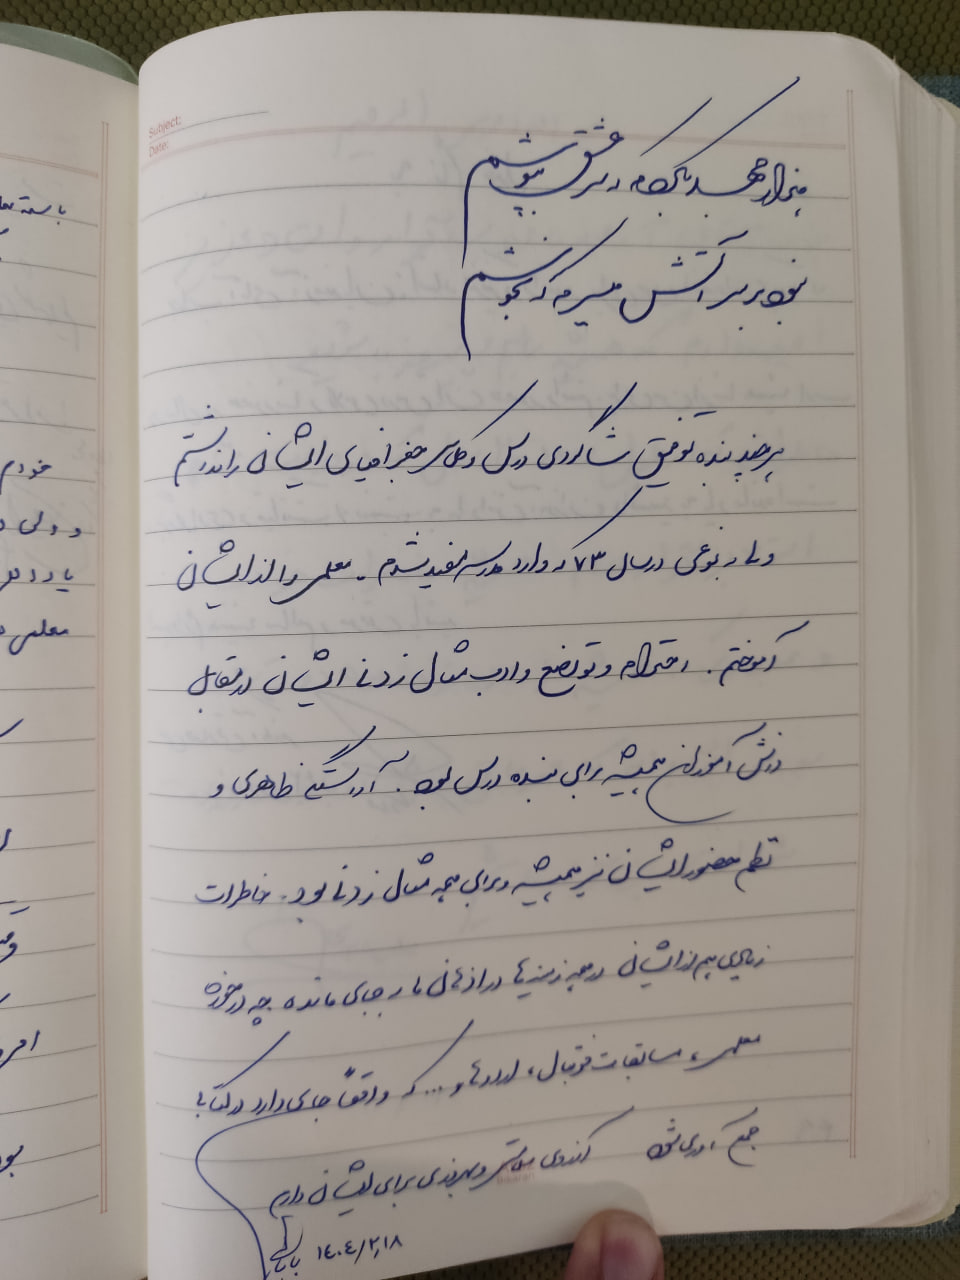 Subject:
Date:
هزار جهد بکردم که سر عشق بپوشم
نبود بر سر آتش میسرم که نجوشم
هرچند بنده توفیق شاگردی درس و کلاس جغرافیای ایشان را نداشتم
ولی به نوعی در سال ۷۳ که وارد مدرسه مفید شدم - معلمی را از ایشان
آموختم. احترام و تواضع و ادب مثال زدنی ایشان در مقابل
دانش آموزان همیشه برای بنده درس بود. آراستگی ظاهری و
نظم حضور ایشان نیز همیشه و برای همه مثال زدنی بود. خاطرات
زیادی هم از ایشان در همه زمینه‌ها در اذهان ما به جای مانده چه در حوزه
معلمی، مسابقات فوتبال، اردوها و ... که واقعاً جای دارد در کتابی
جمع آوری شود آرزوی سلامتی و بهروزی برای ایشان دارم
۱۴۰۴/۲/۱۸
باسمه
خودم
و ولی
یاد
معلمی